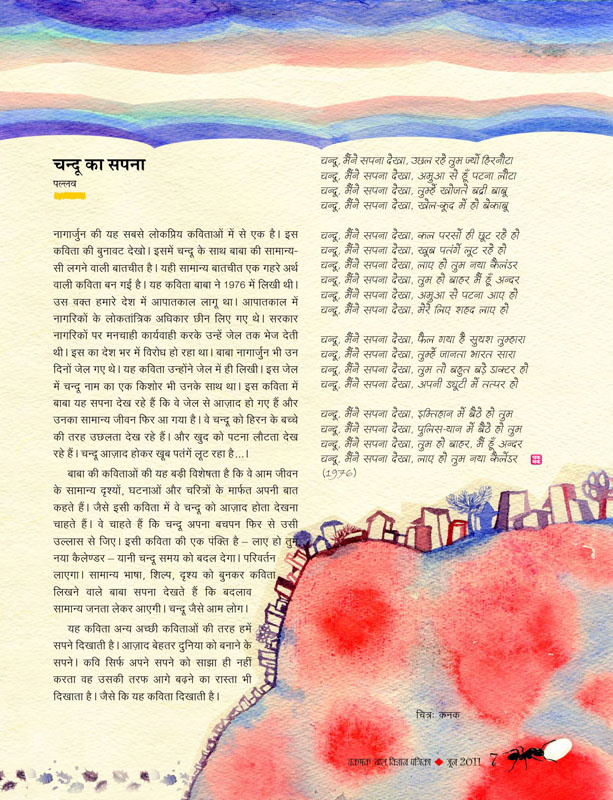 चन्दू का सपना
पल्लव
नागार्जुन की यह सबसे लोकप्रिय कविताओं में से एक है। इस
कविता की बुनावट देखो। इसमें चन्दू के साथ बाबा की सामान्य-
सी लगने वाली बातचीत है। यही सामान्य बातचीत एक गहरे अर्थ
वाली कविता बन गई है। यह कविता बाबा ने 1976 में लिखी थी।
उस वक्त हमारे देश में आपातकाल लागू था। आपातकाल में
नागरिकों के लोकतांत्रिक अधिकार छीन लिए गए थे। सरकार
नागरिकों पर मनचाही कार्यवाही करके उन्हें जेल तक भेज देती
थी। इस का देश भर में विरोध हो रहा था। बाबा नागार्जुन भी उन
दिनों जेल गए थे। यह कविता उन्होंने जेल में ही लिखी। इस जेल
में चन्दू नाम का एक किशोर भी उनके साथ था। इस कविता में
बाबा यह सपना देख रहे हैं कि वे जेल से आज़ाद हो गए हैं और
उनका सामान्य जीवन फिर आ गया है। वे चन्दू को हिरन के बच्चे
की तरह उछलता देख रहे हैं। और खुद को पटना लौटता देख
रहे हैं। चन्दू आज़ाद होकर खूब पतंगें लूट रहा है...।
बाबा की कविताओं की यह बड़ी विशेषता है कि वे आम जीवन
के सामान्य दृश्यों, घटनाओं और चरित्रों के मार्फत अपनी बात
कहते हैं। जैसे इसी कविता में वे चन्दू को आज़ाद होता देखना
चाहते हैं। वे चाहते हैं कि चन्दू अपना बचपन फिर से उसी
उल्लास से जिए। इसी कविता की एक पंक्ति है – लाए हो तुम
नया कैलेण्डर – यानी चन्दू समय को बदल देगा। परिवर्तन
लाएगा। सामान्य भाषा, शिल्प, दृश्य को बुनकर कविता
लिखने वाले बाबा सपना देखते हैं कि बदलाव
सामान्य जनता लेकर आएगी। चन्दू जैसे आम लोग।
यह कविता अन्य अच्छी कविताओं की तरह हमें
सपने दिखाती है। आज़ाद बेहतर दुनिया को बनाने के
सपने। कवि सिर्फ अपने सपने को साझा ही नहीं
करता वह उसकी तरफ आगे बढ़ने का रास्ता भी
दिखाता है। जैसे कि यह कविता दिखाती है।
चन्दू, मैंने सपना देखा, उछल रहे तुम ज्यों हिरनौटा
चन्दू, मैंने सपना देखा, अमुआ से हूँ पटना लौटा
चन्दू, मैंने सपना देखा, तुम्हें खोजते बद्री बाबू
चन्दू, मैंने सपना देखा, खेल-कूद में हो बेकाबू
चन्दू, मैंने सपना देखा, कल परसों ही छूट रहे हो
चन्दू, मैंने सपना देखा, खूब पतंगें लूट रहे हो
चन्दू, मैंने सपना देखा, लाए हो तुम नया कैलंडर
चन्दू, मैंने सपना देखा, तुम हो बाहर मैं हूँ अन्दर
चन्दू, मैंने सपना देखा, अमुआ से पटना आए हो
चन्दू, मैंने सपना देखा, मेरे लिए शहद लाए हो
चन्दू, मैंने सपना देखा, फैल गया है सुयश तुम्हारा
चन्दू, मैंने सपना देखा, तुम्हें जानता भारत सारा
चन्दू, मैंने सपना देखा, तुम तो बहुत बड़े डाक्टर हो
चन्दू, मैंने सपना देखा, अपनी ड्यूटी में तत्पर हो
चन्दू, मैंने सपना देखा, इम्तिहान में बैठे हो तुम
चन्दू, मैंने सपना देखा, पुलिस-यान में बैठे हो तुम
चन्दू, मैंने सपना देखा, तुम हो बाहर, मैं हूँ अन्दर
चन्दू, मैंने सपना देखा, लाए हो तुम नया कैलेंडर
(1976)
चित्र: कनक
चकमक बाल विज्ञान पत्रिका जून 2011 7